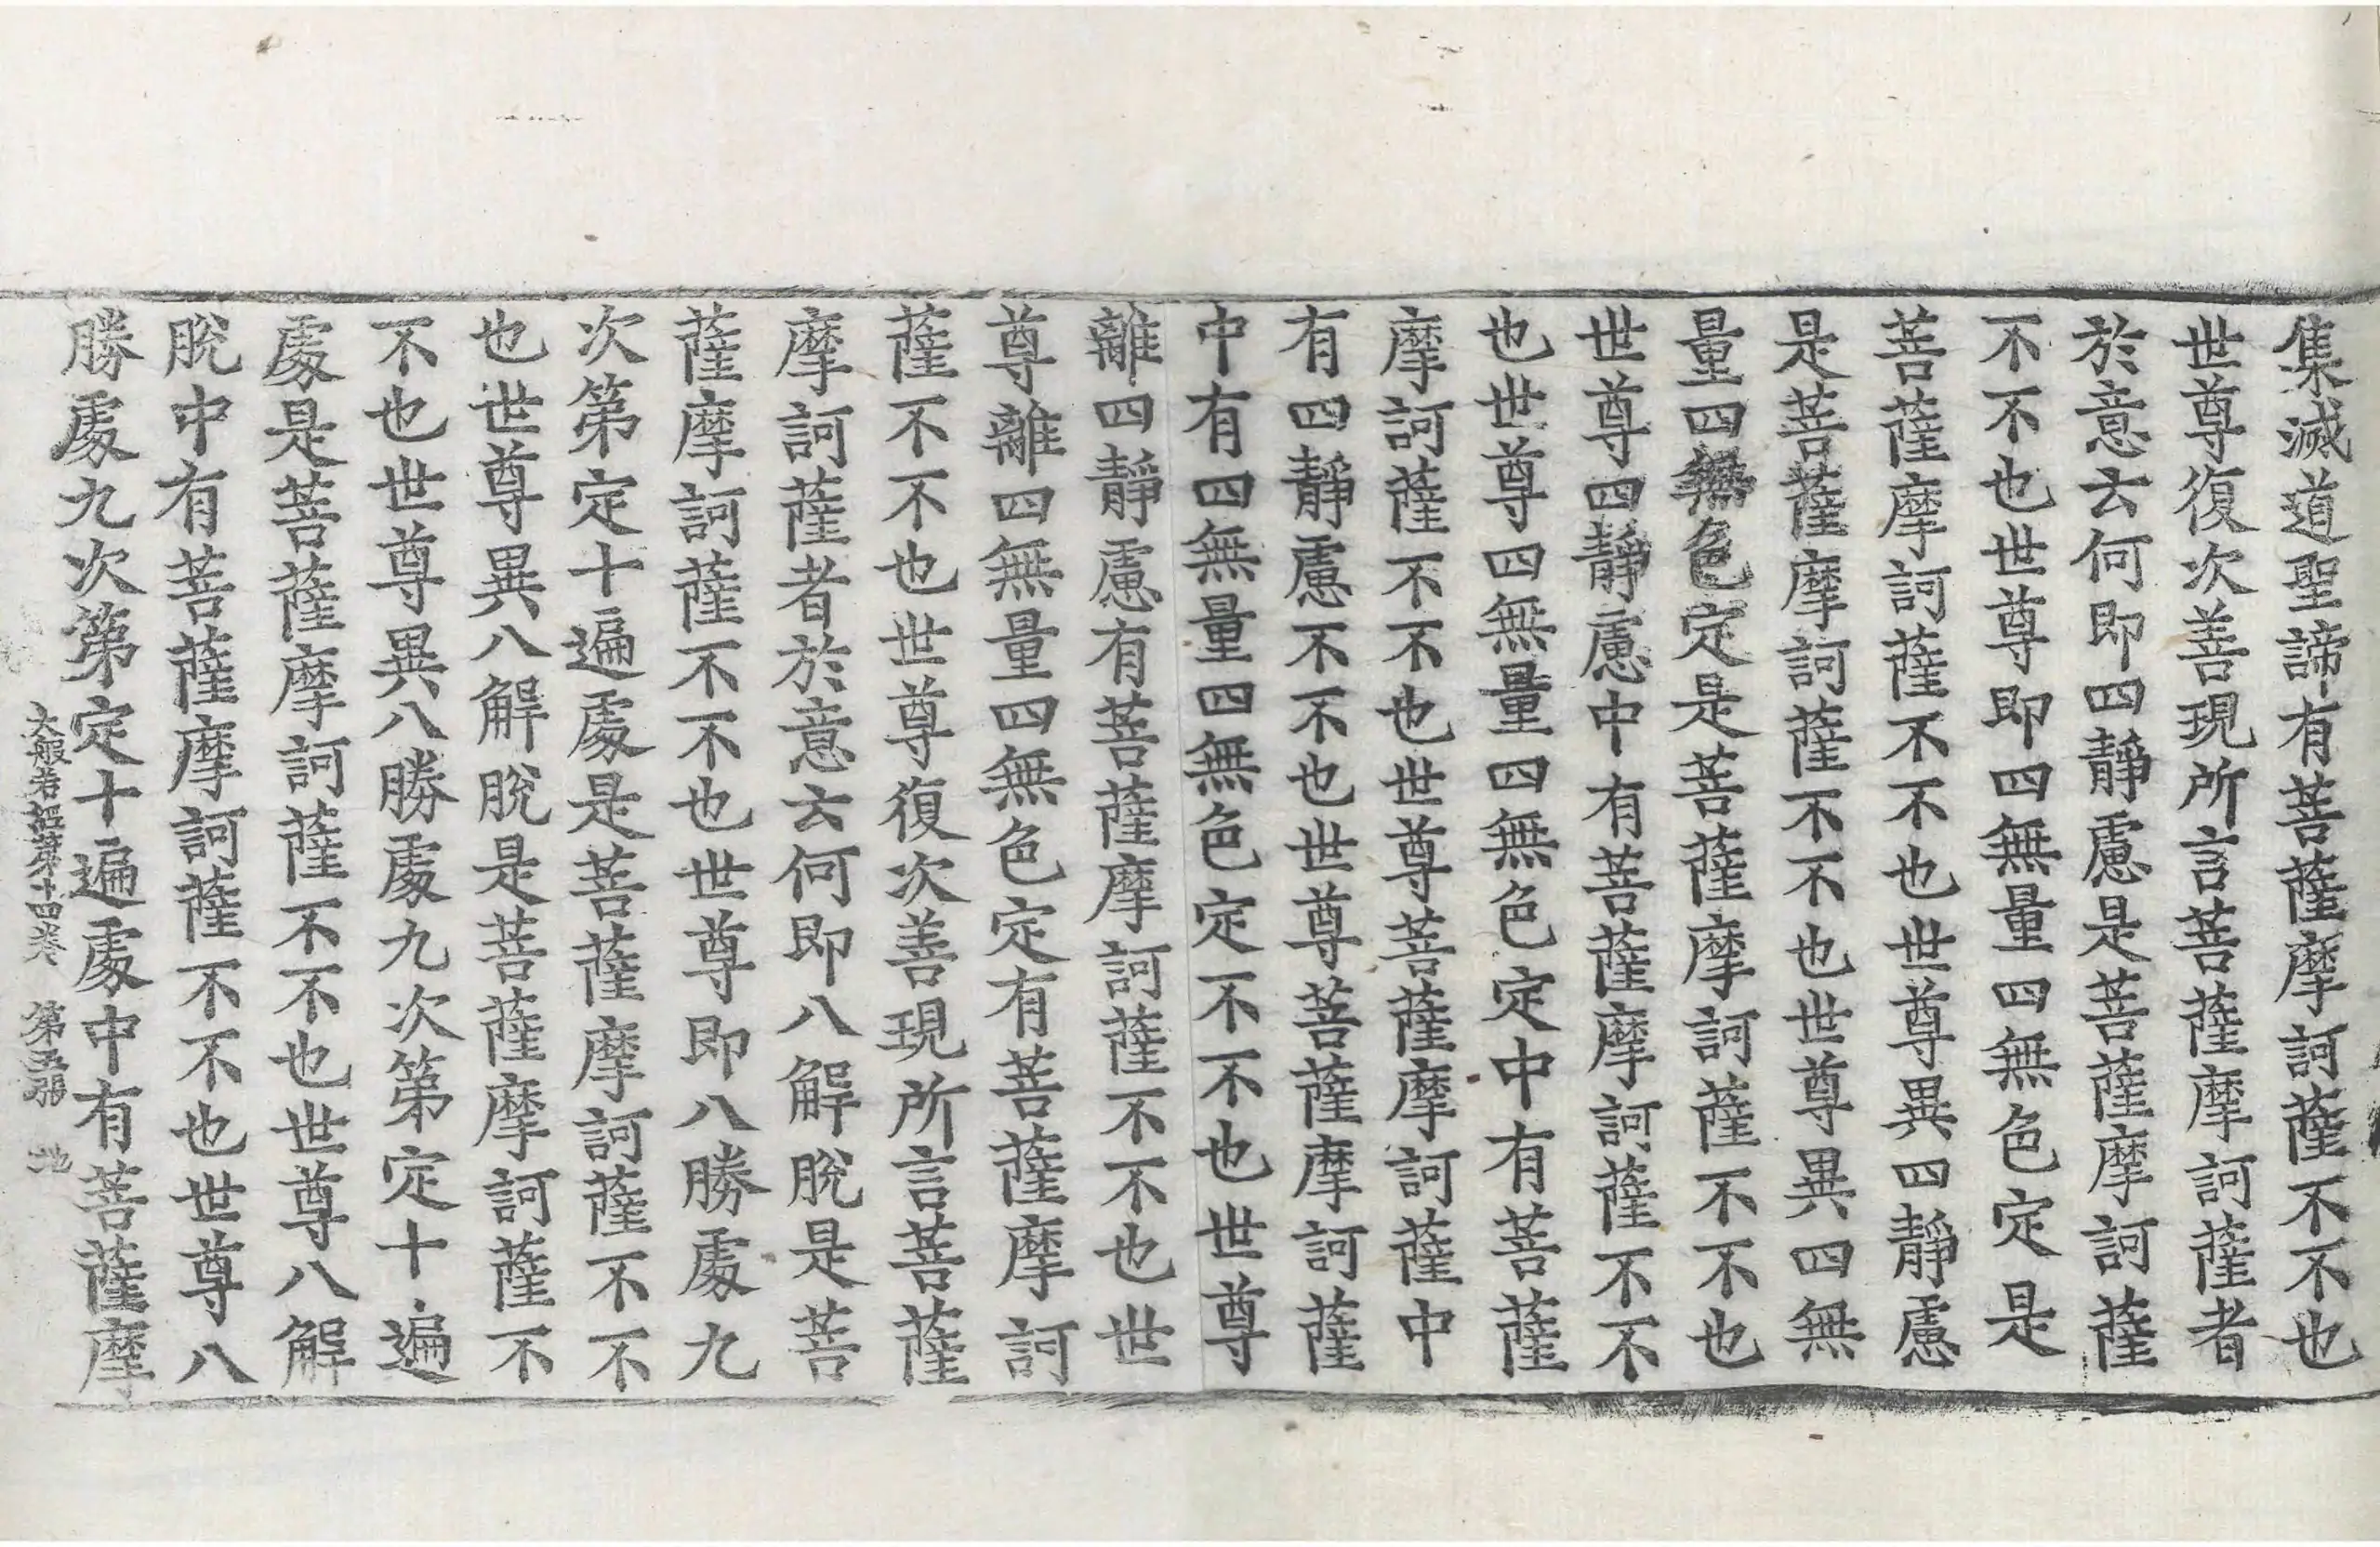 集滅道聖諦有菩薩摩訶薩不不也
世尊復次善現所言菩薩摩訶薩者
於意云何即四靜慮是菩薩摩訶薩
不不也世尊即四無量四無色定是
菩薩摩訶薩不不也世尊異四靜慮
是菩薩摩訶薩不不也世尊異四無
量四無色定是菩薩摩訶薩不不也
世尊四靜慮中有菩薩摩訶薩不不
也世尊四無量四無色定中有菩薩
摩訶薩不不也世尊菩薩摩訶薩中
有四靜慮不不也世尊菩薩摩訶薩
中有四無量四無色定不不也世尊
離四靜慮有菩薩摩訶薩不不也世
尊離四無量四無色定有菩薩摩訶
薩不不也世尊復次善現所言菩薩
摩訶薩者於意云何即八解脫是菩
薩摩訶薩不不也世尊即八勝處九
次第定十遍處是菩薩摩訶薩不不
也世尊異八解脫是菩薩摩訶薩不
不也世尊異八勝處九次第定十遍
處是菩薩摩訶薩不不也世尊八解
脫中有菩薩摩訶薩不不也世尊八
勝處九次第定十遍處中有菩薩摩
大般若經第十四卷 第五張 地